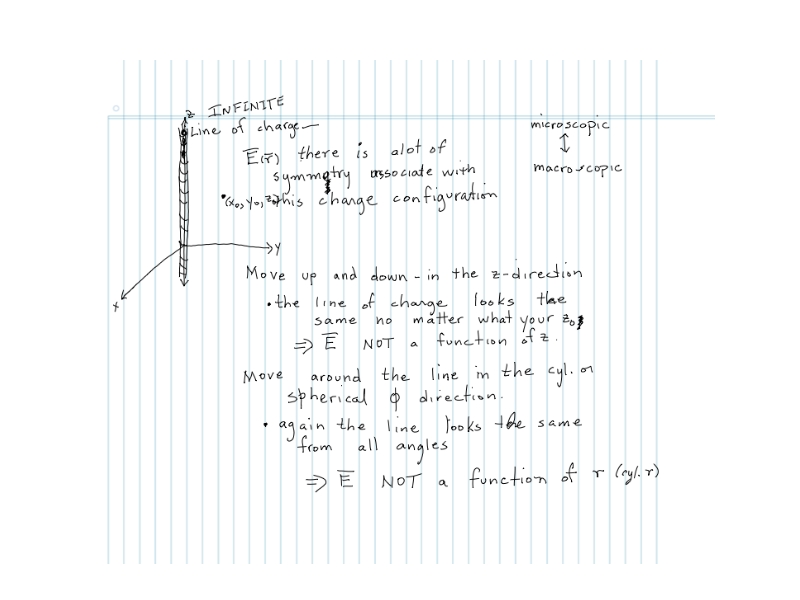 z INFINITE
Line of charge—
E̅(r̅) there is alot of
symmetry associate with
•(x₀, y₀, z₀) this charge configuration
microscopic
↕
macroscopic
y
x
Move up and down - in the z-direction
• the line of charge looks the
same no matter what your z₀
⇒ E̅ NOT a function of z.
Move around the line in the cyl. or
spherical ϕ direction.
• again the line looks the same
from all angles
⇒ E̅ NOT a function of r (cyl. r)